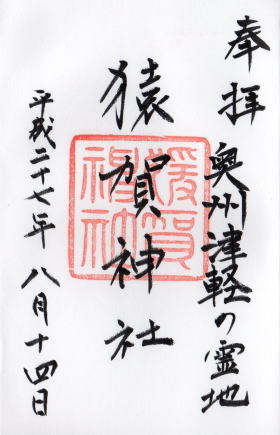 奉拝
奥州津軽の霊地
猿賀神社
猿賀神社
平成二十七年八月十四日